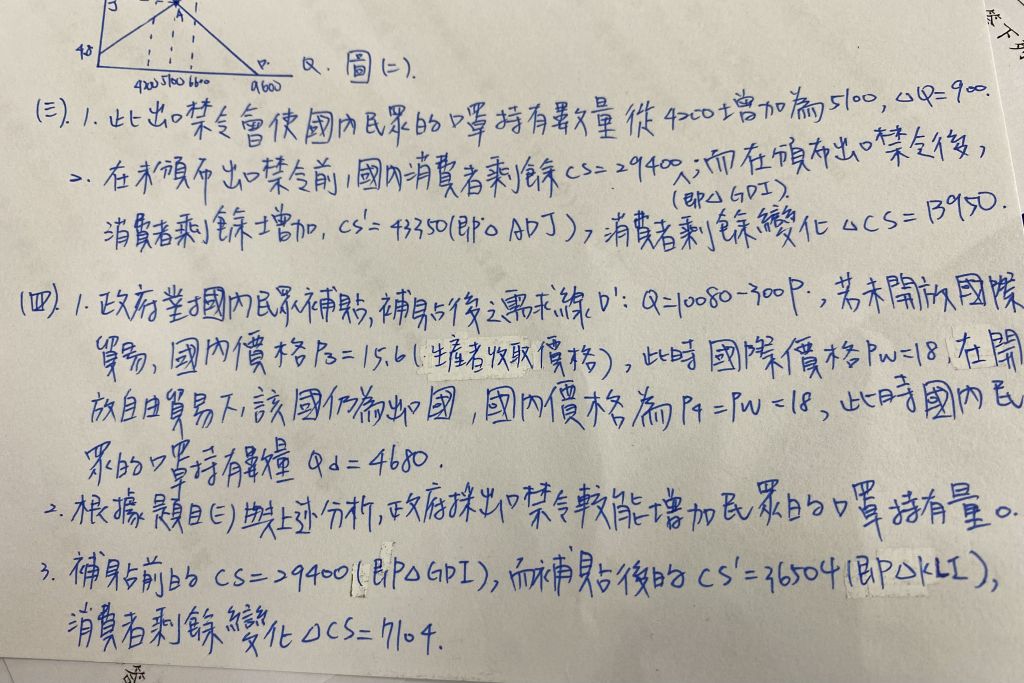 J
A
48
D.
4200 5100 6600
9600
Q. 圖(二).
(三). 1. 此出口禁令會使國內民眾的口罩持有數量從4200增加為5100, △Q=900.
2. 在未頒布出口禁令前,國內消費者剩餘CS=29400;而在頒布出口禁令後,
(即△GDI).
消費者剩餘增加, CS'=43350(即△ADJ), 消費者剩餘變化△CS=13950.
(四). 1. 政府對國內民眾補貼,補貼後之需求線D': Q=10080-300P., 若未開放國際
貿易,國內價格P3=15.6(生產者收取價格), 此時國際價格Pw=18,在開
放自由貿易下,該國仍為出口國,國內價格為P4=Pw=18, 此時國內民
眾的口罩持有數量 Qd=4680.
2. 根據題目(三)與上述分析,政府採出口禁令較能增加民眾的口罩持有量。
3. 補貼前的CS=29400(即△GDI), 而補貼後的CS'=36504(即△KLI),
消費者剩餘變化△CS=7104.